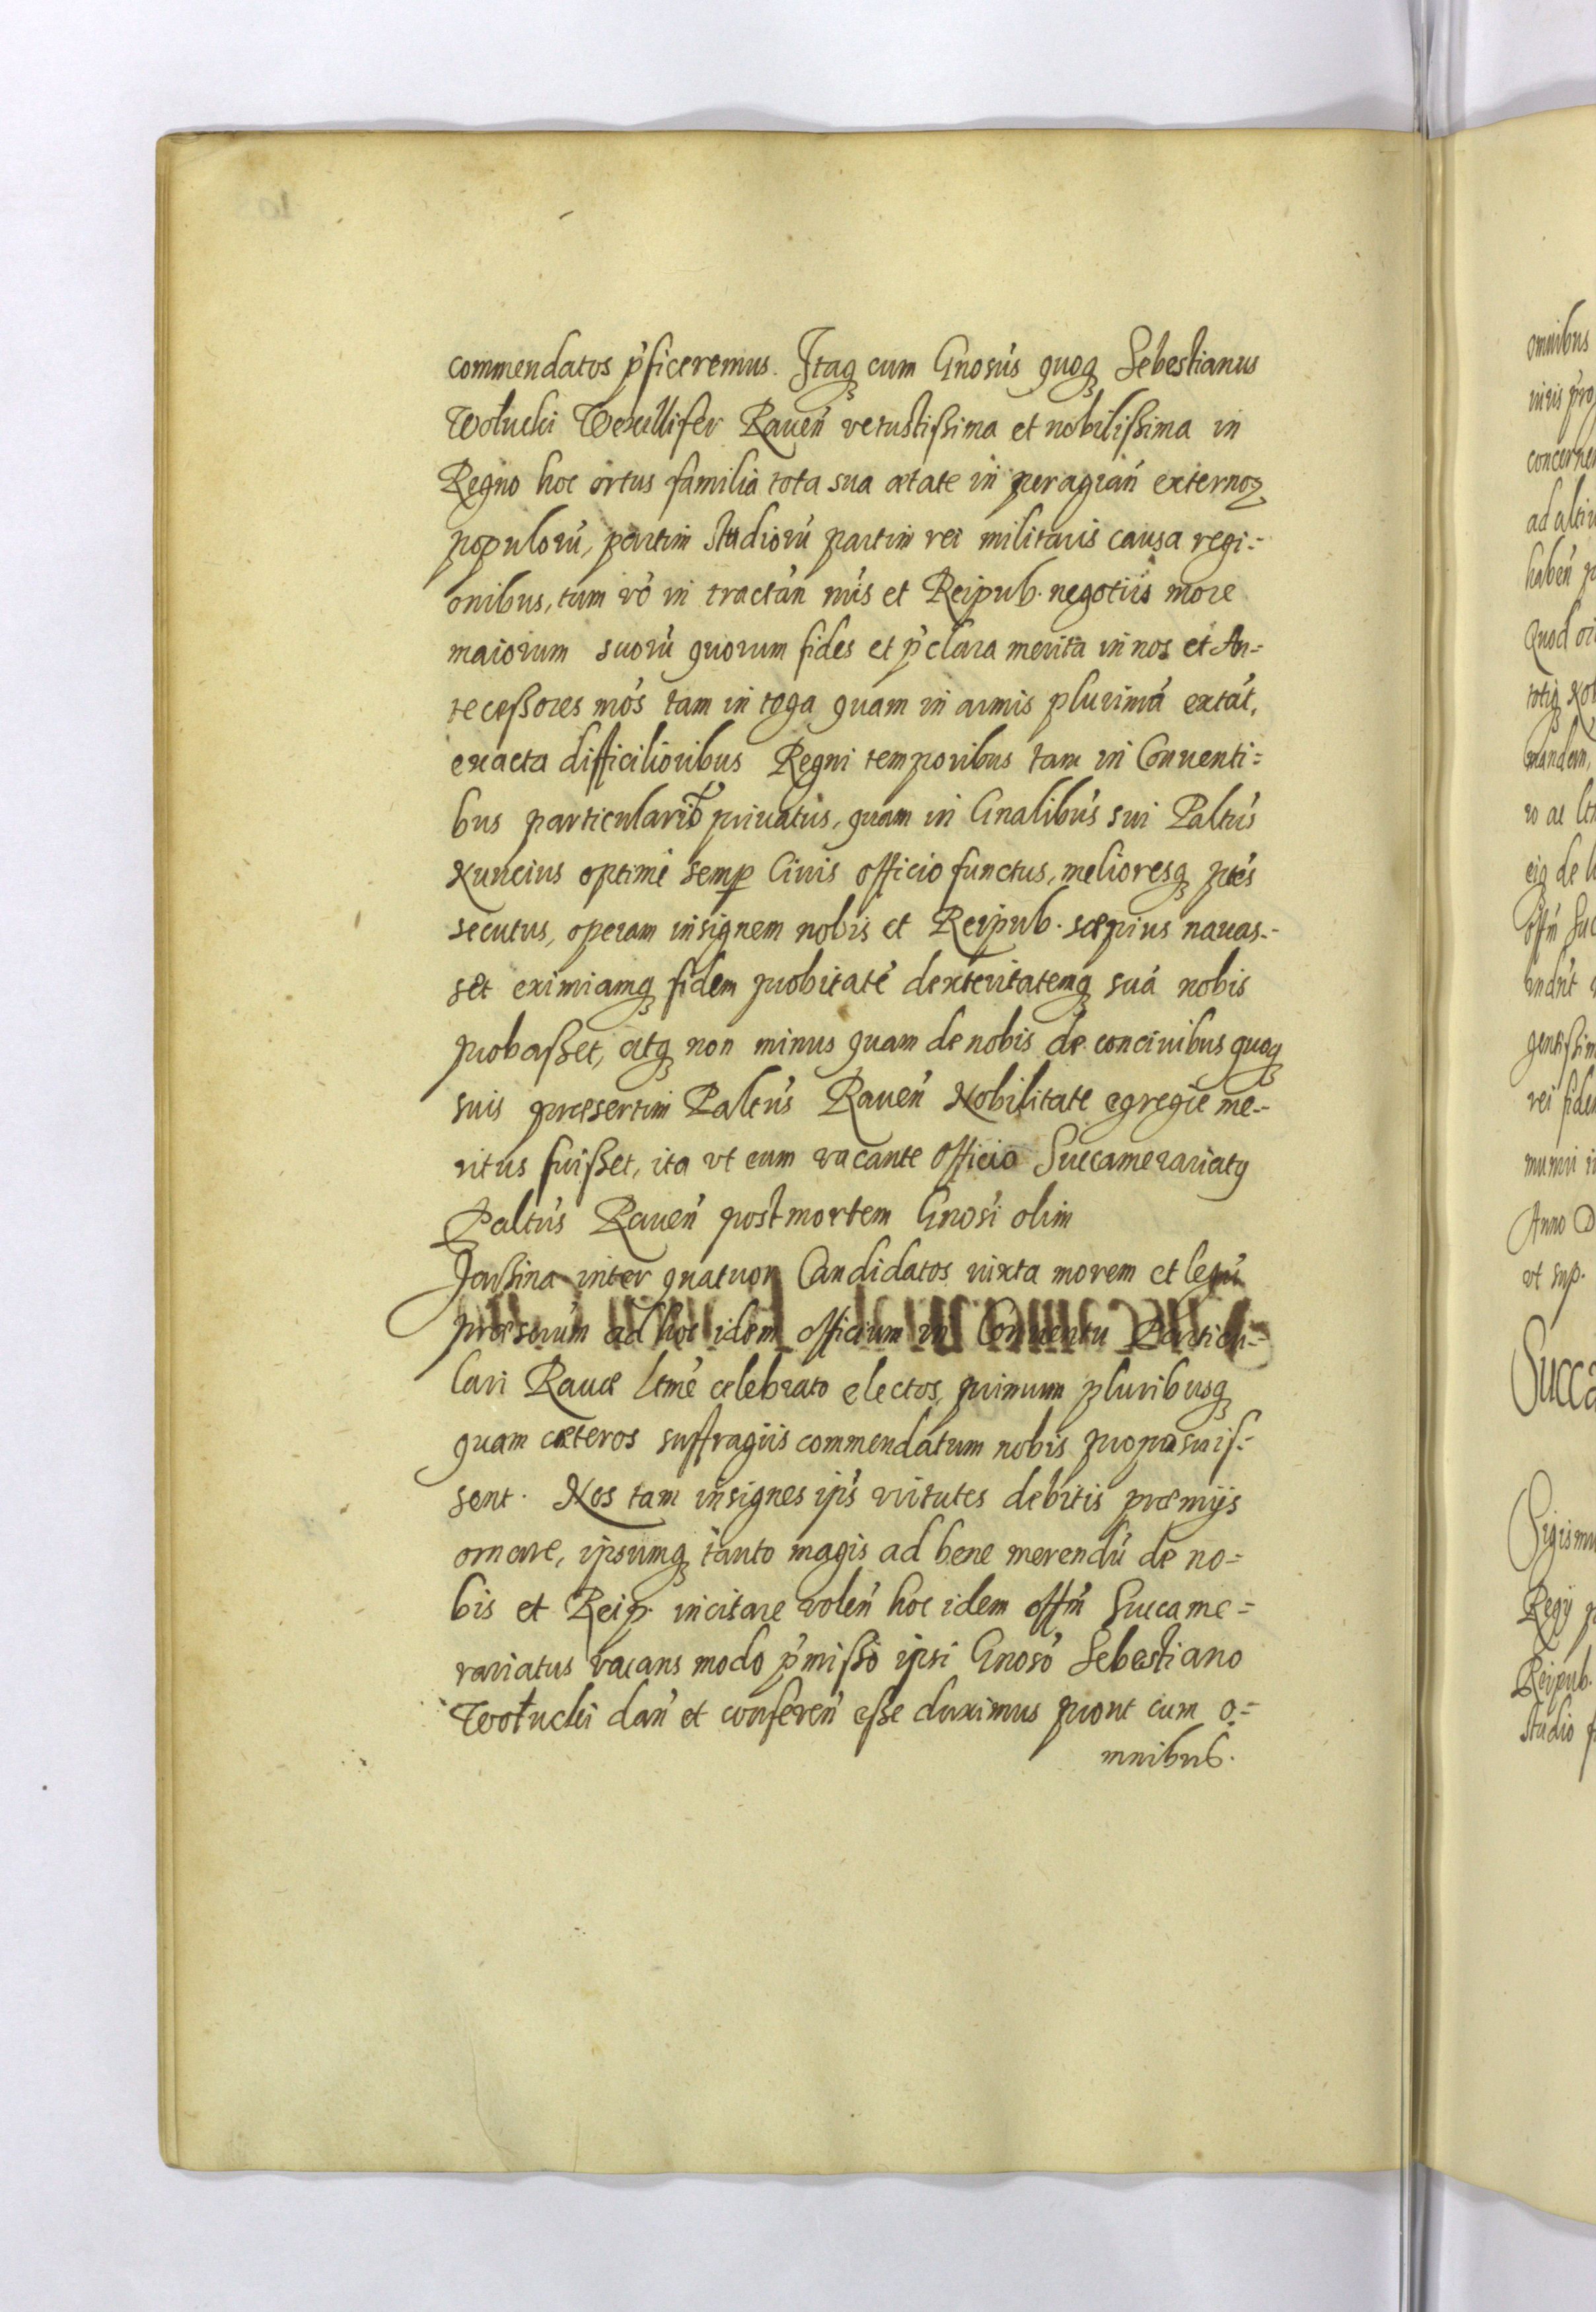 commendatos p̉ficeremus. Itaq cum Gnosus quoq Sebestianus
Wołucki Wexillifer Rauen̄ vetustißima et nobilißima in
Regno hoc ortus familia tota sua ætate in peragran̄ externoꝝ
populorū, partim studiorū partim rei militaris causa regi=
onibus, tum vō in tractan̄ nr̄is et Reipub. negotiis more
maiorum suorū quorum fides et p̉clara merita in nos et An=
tecessores nr̄os tam in toga quam in armis plurimā extāt,
exacta difficilioribus Regni temporibus tam in Conuenti=
bus particularib priuatus, quam in Gnalibus sui Paltus
Nuncius optimi semp Ciuis officio functus, melioresq ptes
secutus, operam insignem nobis et Reipub. sæpius nauas=
set eximiamq fidem probitatē dexteritatemq suā nobis
probaßet, atq non minus quam de nobis de conciuibus quoq
suis præsertim Paltus Rauen̄ Nobilitate egregie me=
ritus fuißet, ita vt eum vacante officio Succamerariatq
Paltus Rauen̄ post mortem Gnosi olim
inter quatuor Candidatos iuxta morem et legū
præscrium ad hoc idem officium in Conuentu Particu=
lari Rauæ ltme celebrato electos, primum pluribusq
quam cæteros suffragiis commendatum nobis proposuis=
sent. Nos tam insignes ip̄s virtutes debitis præmijs
ornare, ipsumq tanto magis ad bene merendū de no=
bis et Reip. incitare volen̄ hoc idem off̄m Succame=
rariatus vacans modo p̉missō ipsi Gnosō Sebastiano
Wołucki dan̄ et conferen̄ esse duximus prout cum o=
mnibus.